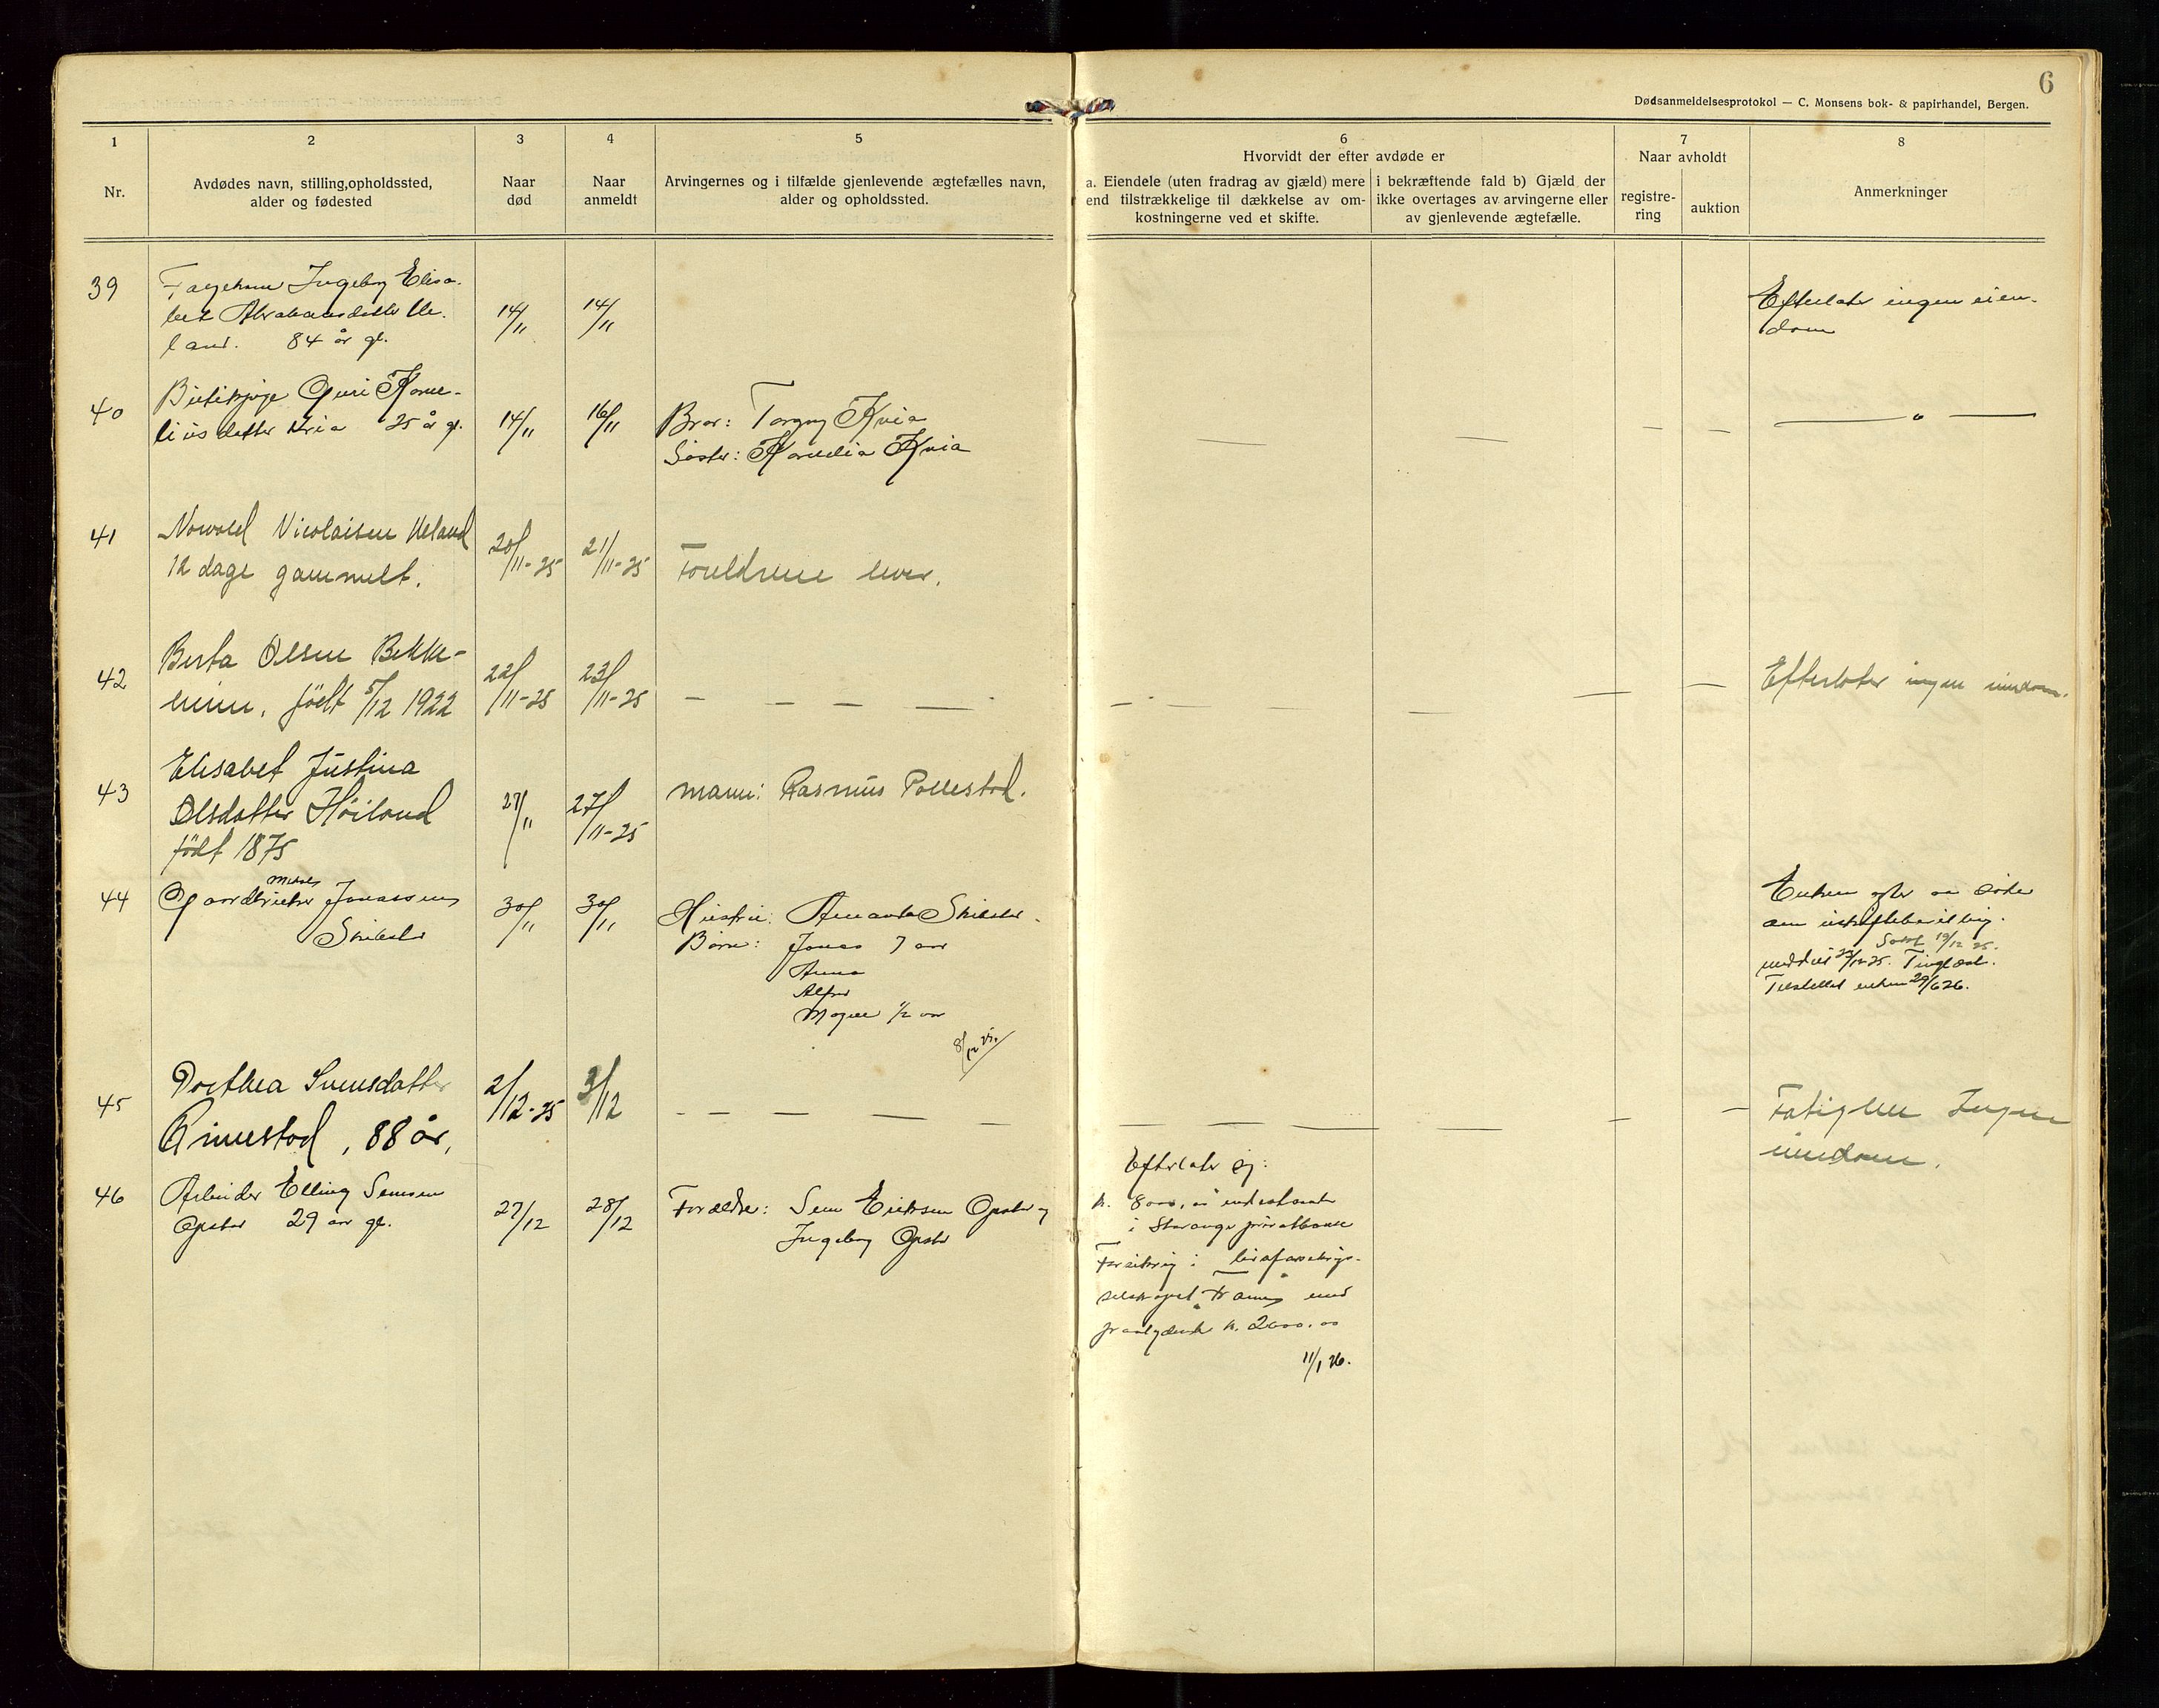 6
Dødsanmeldelsesprotokol — C. Monsens bok- & papirhandel, Bergen.
1
Nr.
2
Avdødes navn, stilling, opholdssted,
alder og fødested
3
Naar
død
4
Naar
anmeldt
5
Arvingernes og i tilfælde gjenlevende ægtefælles navn,
alder og opholdssted.
6
Hvorvidt der efter avdøde er
a. Eiendele (uten fradrag av gjæld) mere
end tilstrækkelige til dækkelse av om-
kostningerne ved et skifte.
i bekræftende fald b) Gjæld der
ikke overtages av arvingerne eller
av gjenlevende ægtefælle.
7
Naar avholdt
registre-
ring
auktion
8
Anmerkninger
39
Ingeborg Elisa-
bet Abrahamsdatter Ue-
land. 84 år gl.
14/11
14/11
Efterlater ingen eien-
dom
40
Guri Korne-
liusdatter Kvia 25 år gl.
14/11
16/11
Bror: Torgny Kvia
Søster: Kornelia Kvia
— — — —
— " —
41
Nicolaisen Ueland
12 dage gammelt.
20/11-25
21/11-25
Foreldrene lever.
42
Berta Olsen Bekke-
heien, født 5/12 1922
22/11-25
23/11-25
— — — —
— — — — —
Efterlater ingen eiendom.
43
Elisabet Justina
Olsdatter Høiland
født 1875
27/11
27/11-25
Mann: Rasmus Pollestad.
44
Gaardbruker Jonassen
30/11
30/11
Hustru: Amanda
Børn: Jonas 7 aar
Anna
Alfred
Magne 1/2 aar
8/12 25.
Enken agter aa søke
om uskiftebevilling.
Søkt 19/12 25.
meddelt 23/12-25. Tinglæst.
Tilstillet enken 29/6 26.
45
Dorthea Svensdatter
Rimestad, 88 år,
2/12-25
3/12
— — — — —
— — — — — —
Fatiglem Ingen
eiendom.
46
Arbeider Elling Semsen
Opstad 29 aar gl.
27/12
28/12
Forældre: Sem Eriksen Opstad og
Ingeborg Opstad
Efterlater sig:
kr. 8000,00 indestaaende
i Stavanger privatbank
Forsikring i livsforsikrings-
selskapet "Fram" med
paalydende kr. 2000.00
11/1 26.